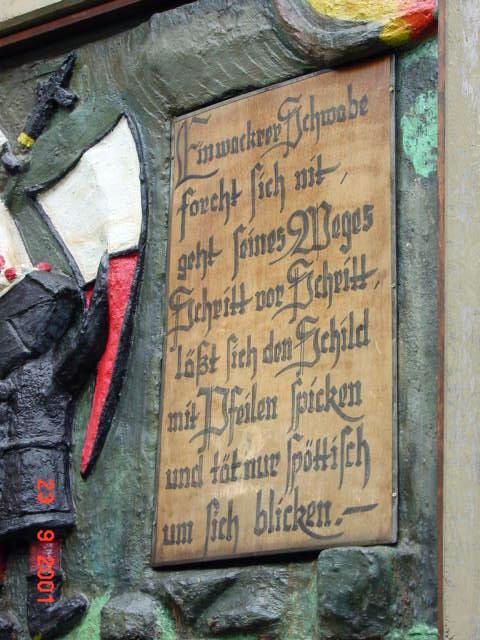 Ein wackrer Schwabe
forcht sich nit,
geht seines Weges
Schritt vor Schritt,
läßt sich den Schild
mit Pfeilen spicken
und tät nur spöttisch
um sich blicken.—
23 9 2001